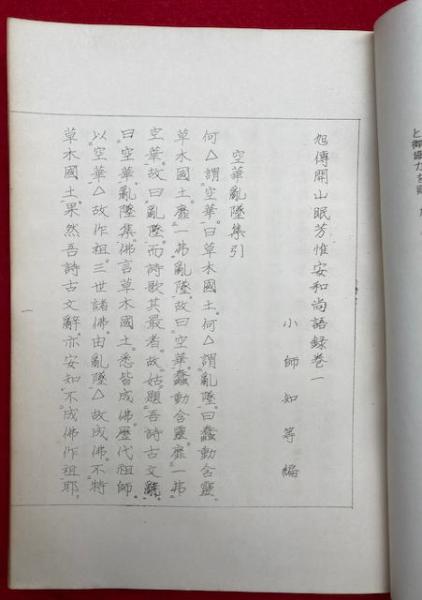 旭傳開山眠芳惟安和尚語録巻一
小師知等編
空華亂墜集引
何△謂空華。曰草木國土。何△謂亂墜。曰蠢動含靈。
草木國土。靡一弗亂墜。故曰空華。蠢動含靈。靡一弗
空華。故曰亂墜。而詩歌其最者。故姑題吾詩古文辭。
曰空華亂墜集。佛言草木國土。悉皆成佛。歴代祖師。
以空華△故作祖。三世諸佛。由亂墜△故成佛。不特
草木國土。果然吾詩古文辭。亦安知不成佛作祖耶。